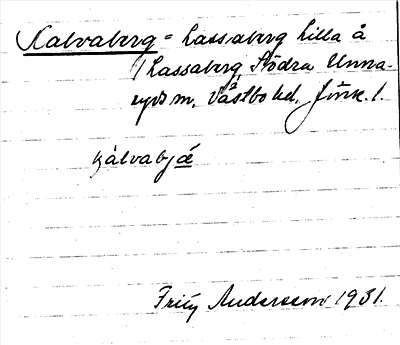 Kalvaberg = Lassaberg Lilla å
Lassaberg, Södra Unna-
ryds m, Västbo hd. Jönk. l.
kálvabjæ
Fritz Andersson 1931.